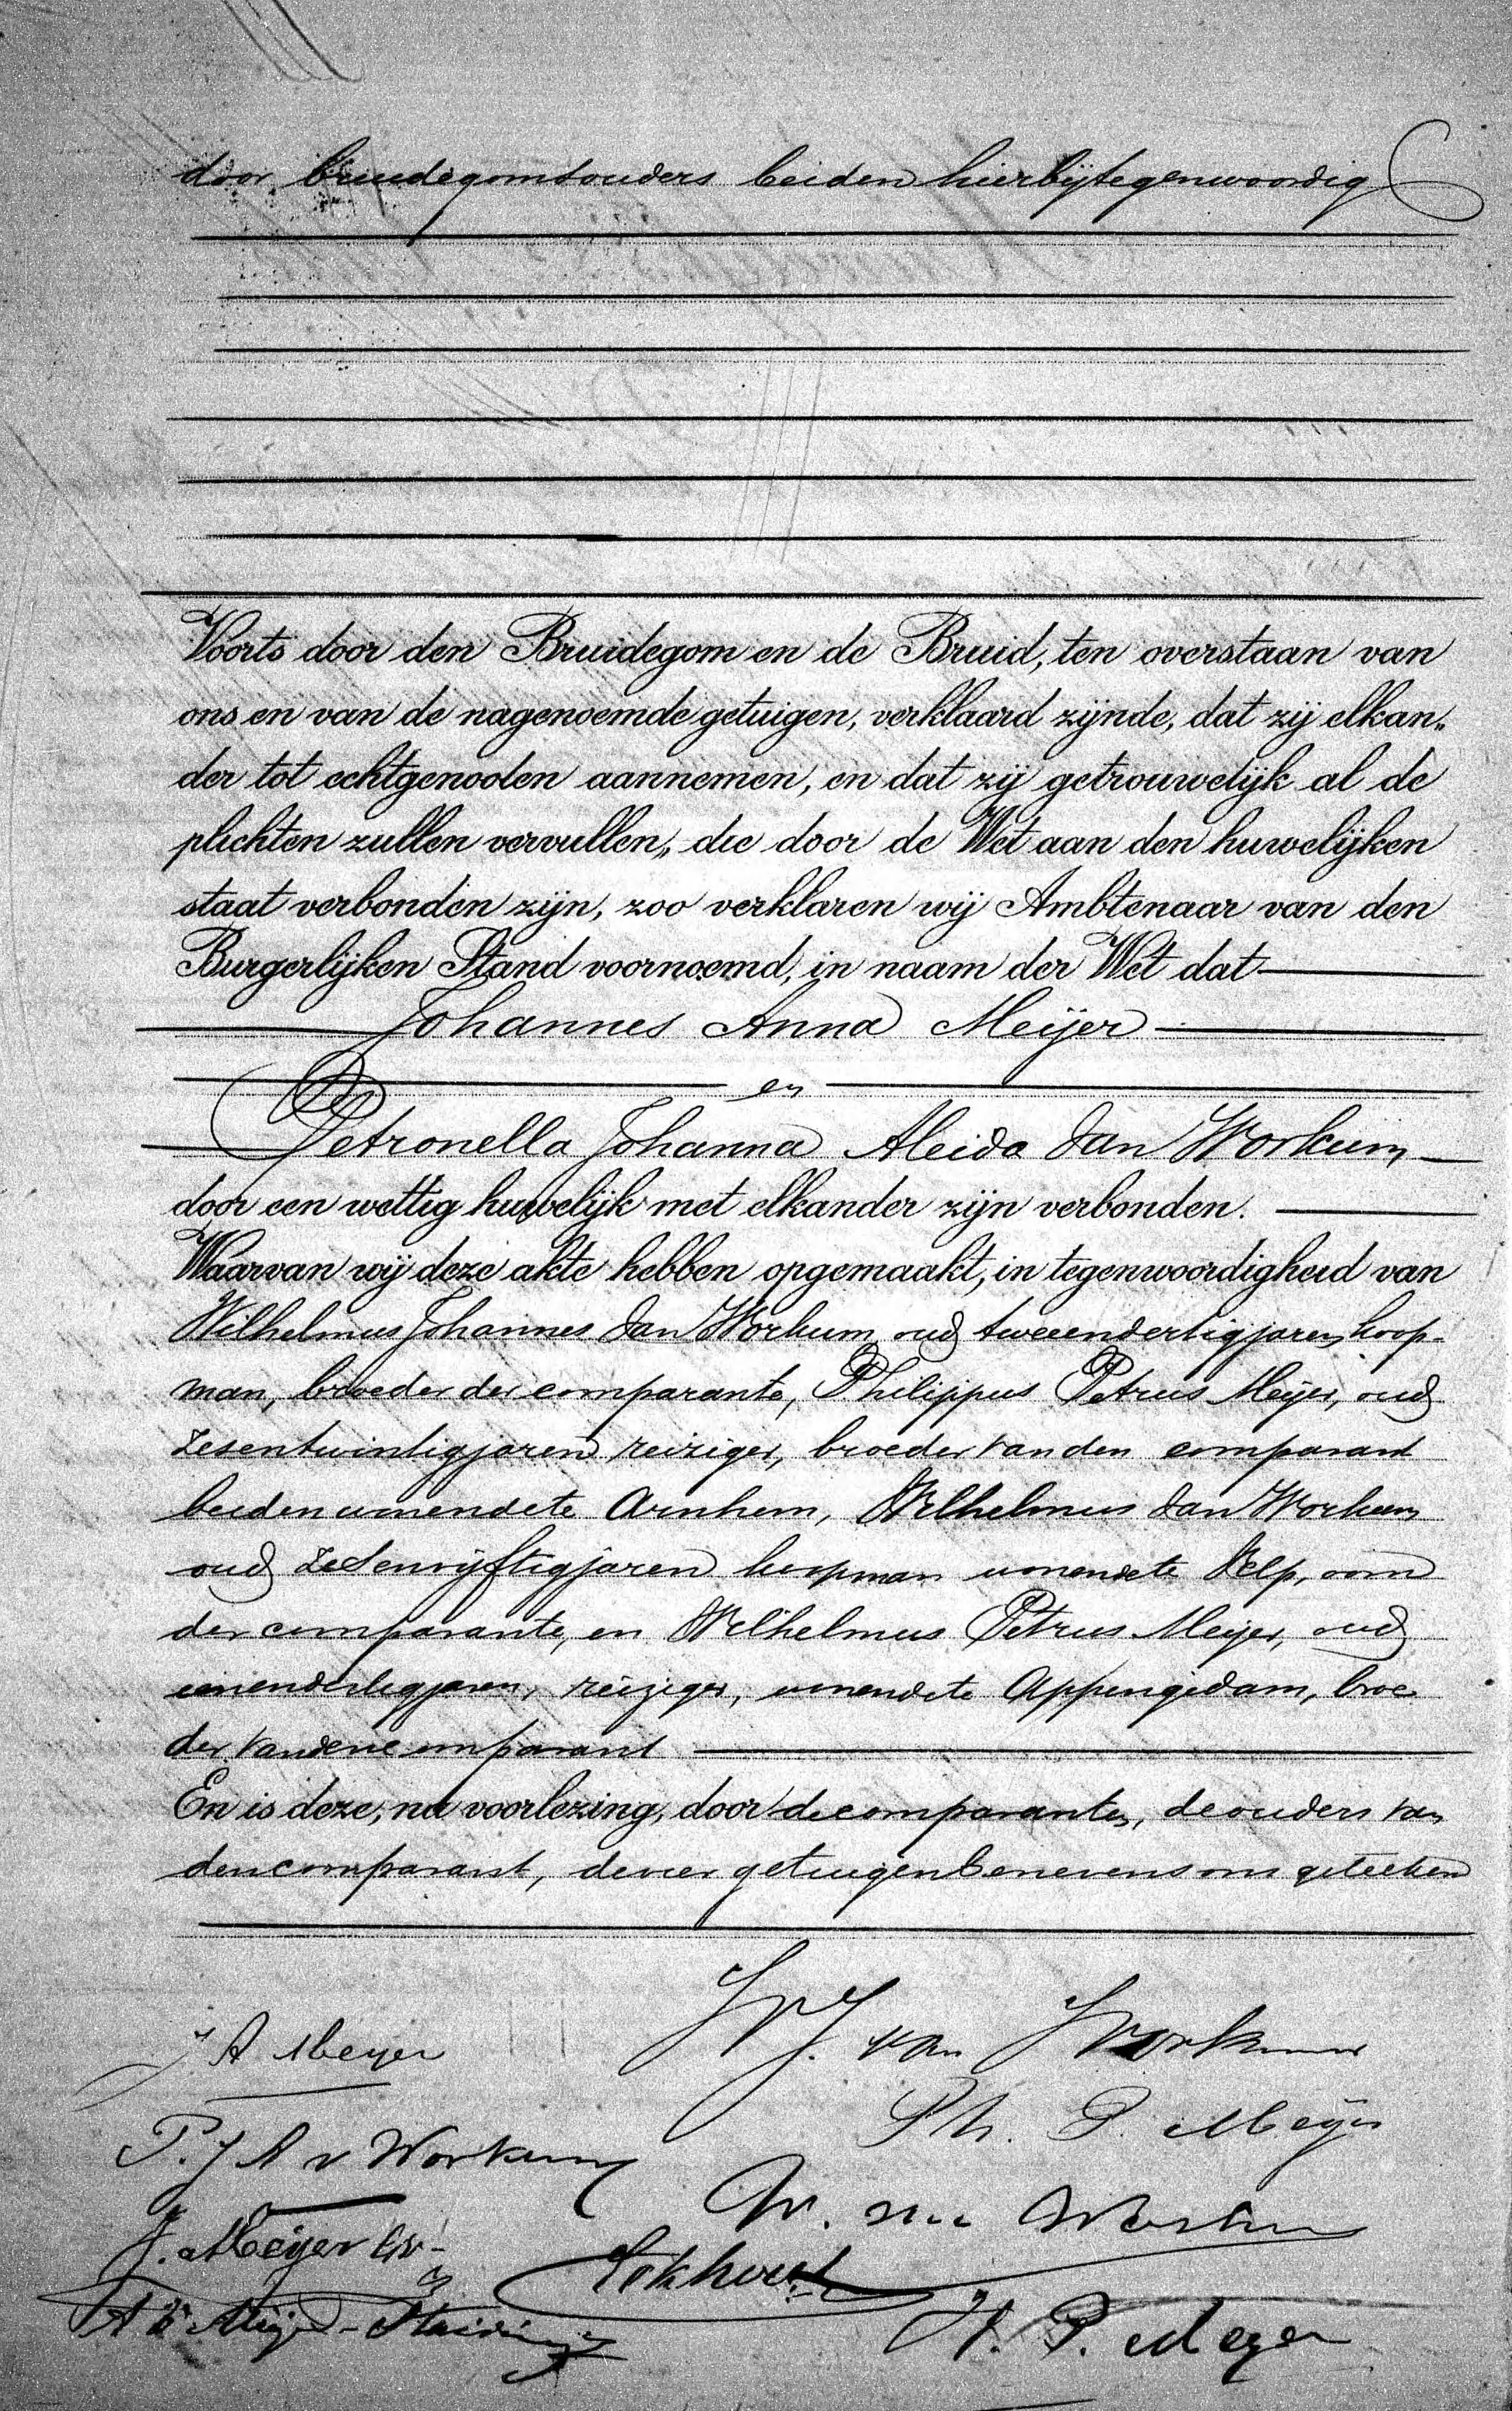 door bruidegomsouders beiden hierbijtegenwoordig
Voorts door den Bruidegom en de Bruid, ten overstaan van
ons en van de nagenoemde getuigen, verklaard zijnde, dat zij elkan„
der tot echtgenooten aannemen, en dat zij getrouwelijk al de
plichten zullen vervullen, die door de Wet aan den huwelijken
staat verbonden zijn, zoo verklaren wij Ambtenaar van den
Burgerlijken Stand voornoemd, in naam der Wet dat
Johannes Anna Meijer
en
Petronella Johanna Aleida van Workum
door een wettig huwelijk met elkander zijn verbonden.
Waarvan wij deze akte hebben opgemaakt, in tegenwoordigheid van
Wilhelmus Johannes van Workum, oud tweeendertig jaren, koop-
man, broeder der comparante, Philippus Petrus Meijer, oud
zesentwintig jaren reiziger, broeder van den comparant
beiden wonende te Arnhem, Wilhelmus van Workum
oud zevenvijftig jaren koopman wonende te Velp, oom
der comparante, en Wilhelmus Petrus Meijer, oud
eenendertig jaren, reiziger, wonende te Appingedam, broe
der van den comparant
En is deze, na voorlezing, door de comparanten, de ouders van
den comparant, de vier getuigen benevens ons geteekend
J A Meyer
W J. van Workum
Ph. P. Meijer
P. J A v Workum
W. van Workum
J. Meijer
Eekhout
A Meijer-
W. P. Meyer